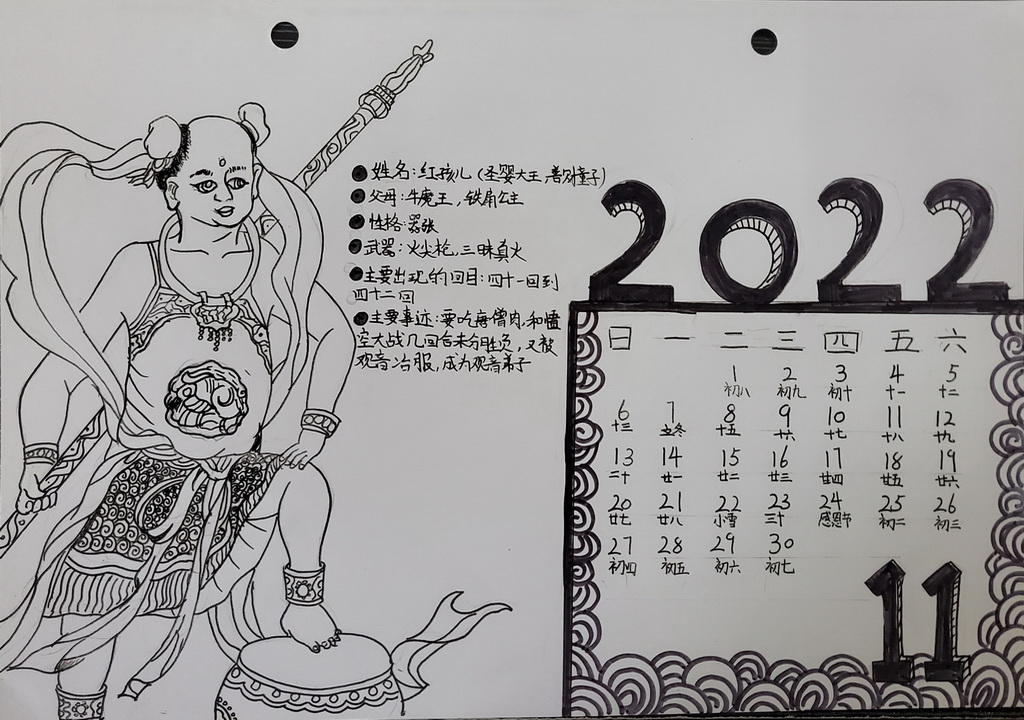 姓名:红孩儿(圣婴大王,善财童子)
父母:牛魔王,铁扇公主
性格:嚣张
武器:火尖枪,三昧真火
主要出现的回目:四十一回到
四十二回
主要事迹:要吃唐僧肉,和悟
空大战几回合未分胜负,又被
观音冶服,成为观音弟子
2022
日 一 二 三 四 五 六
1 2 3 4 5
初八 初九 初十 十一 十二
6 7 8 9 10 11 12
十三 立冬 十五 十六 十七 十八 十九
13 14 15 16 17 18 19
二十 廿一 廿二 廿三 廿四 廿五 廿六
20 21 22 23 24 25 26
廿七 廿八 小雪 三十 感恩节 初二 初三
27 28 29 30
初四 初五 初六 初七
11